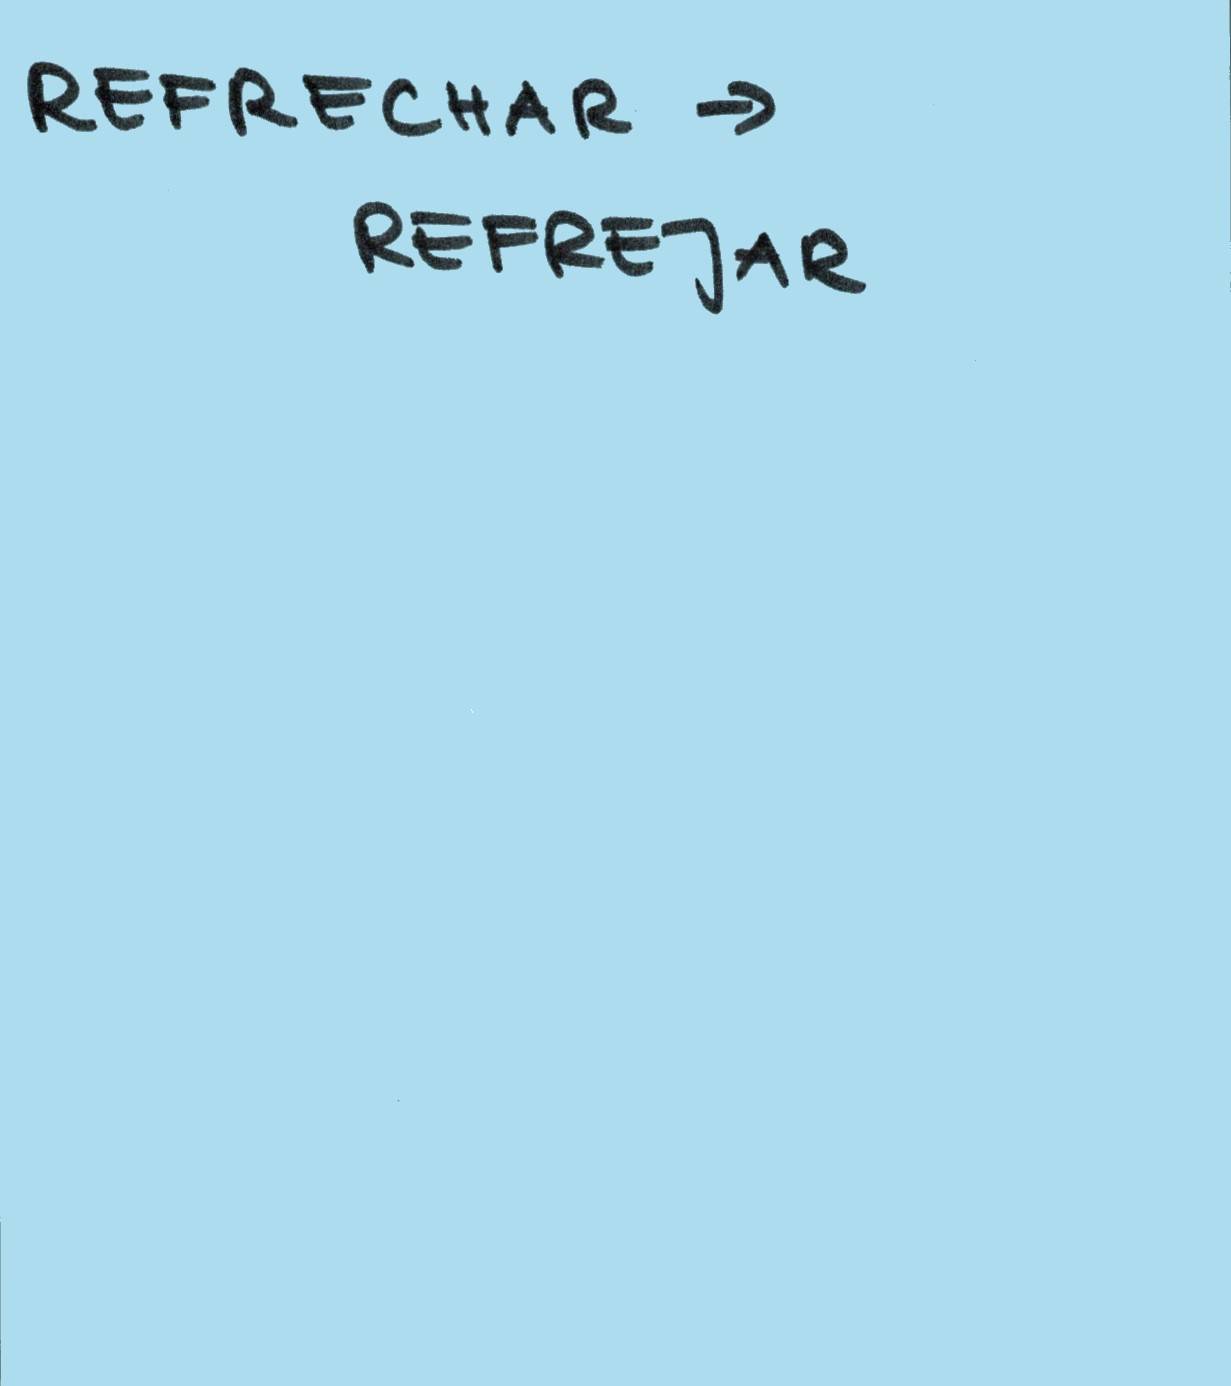 REFRECHAR →
REFREJAR